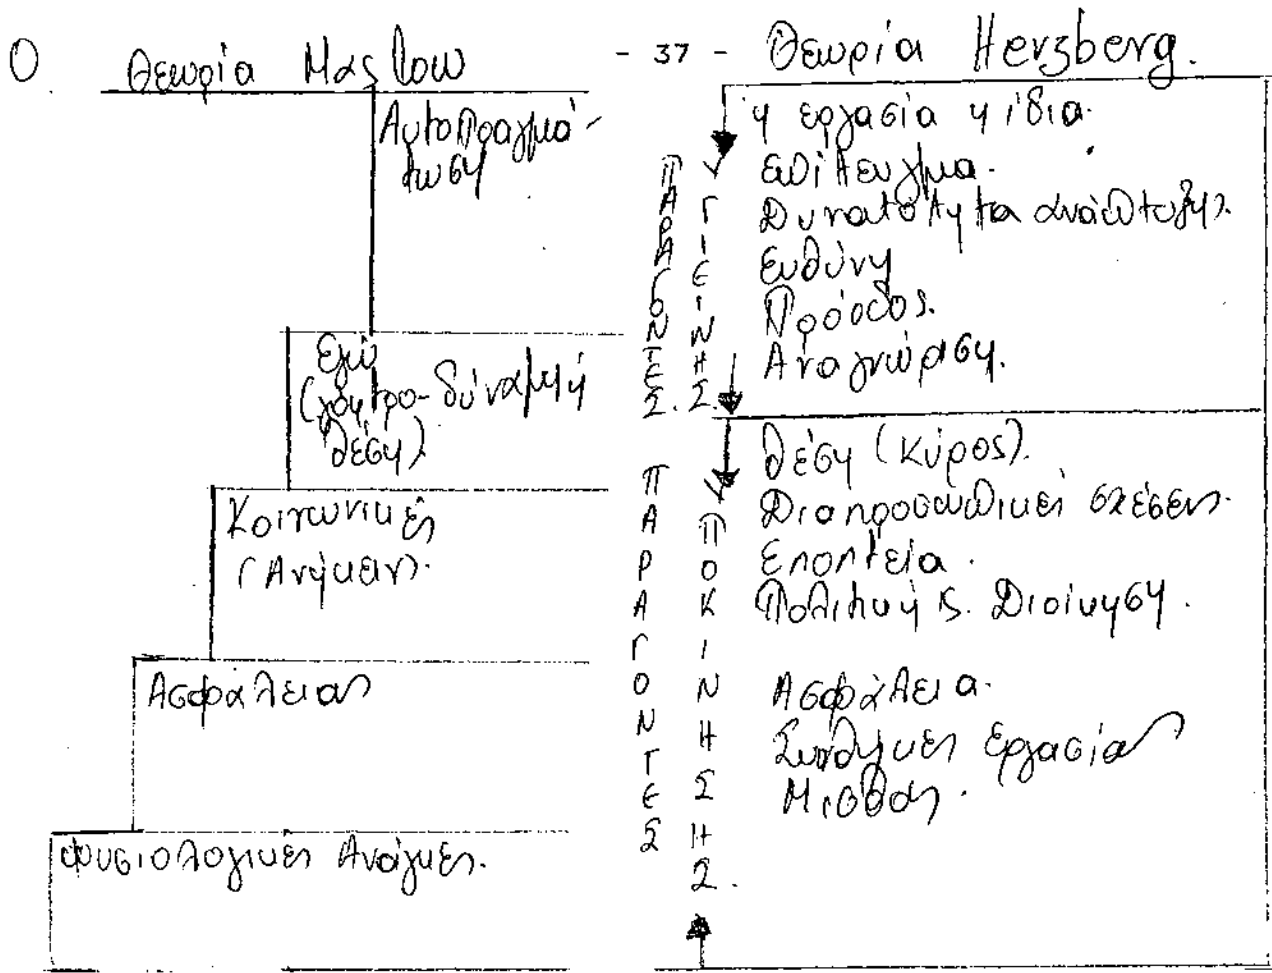 Θεωρία Maslow
- 37 -
Θεωρία Herzberg.
Αυτοπραγμά-
τωση
Εγώ
δύναμη ή
θέση)
Κοινωνικές
(Ανήκειν).
Ασφάλειας
Φυσιολογικές Ανάγκες.
ΠΑΡΑΓΟΝΤΕΣ.
ΥΓΙΕΙΝΗΣ.
η εργασία η ίδια.
επίτευγμα.
Δυνατότητα ανάπτυξης.
Ευθύνη
Πρόοδος.
Αναγνώριση.
ΠΑΡΑΓΟΝΤΕΣ
ΥΠΟΚΙΝΗΣΗΣ.
θέση (κύρος).
Διαπροσωπικές σχέσεις.
Εποπτεία.
Πολιτική & Διοίκηση.
Ασφάλεια.
Συνθήκες εργασίας
Μισθός.